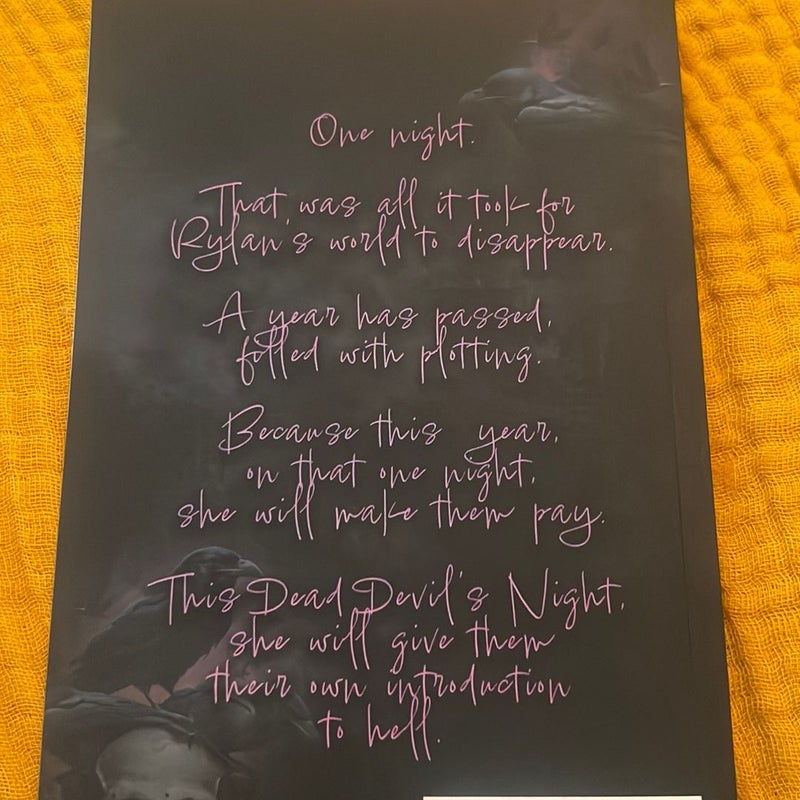 One night.
That was all it took for
Rylan's world to disappear.
A year has passed,
filled with plotting.
Because this year,
on that one night,
she will make them pay.
This Dead Devil's Night,
she will give them
their own introduction
to hell.